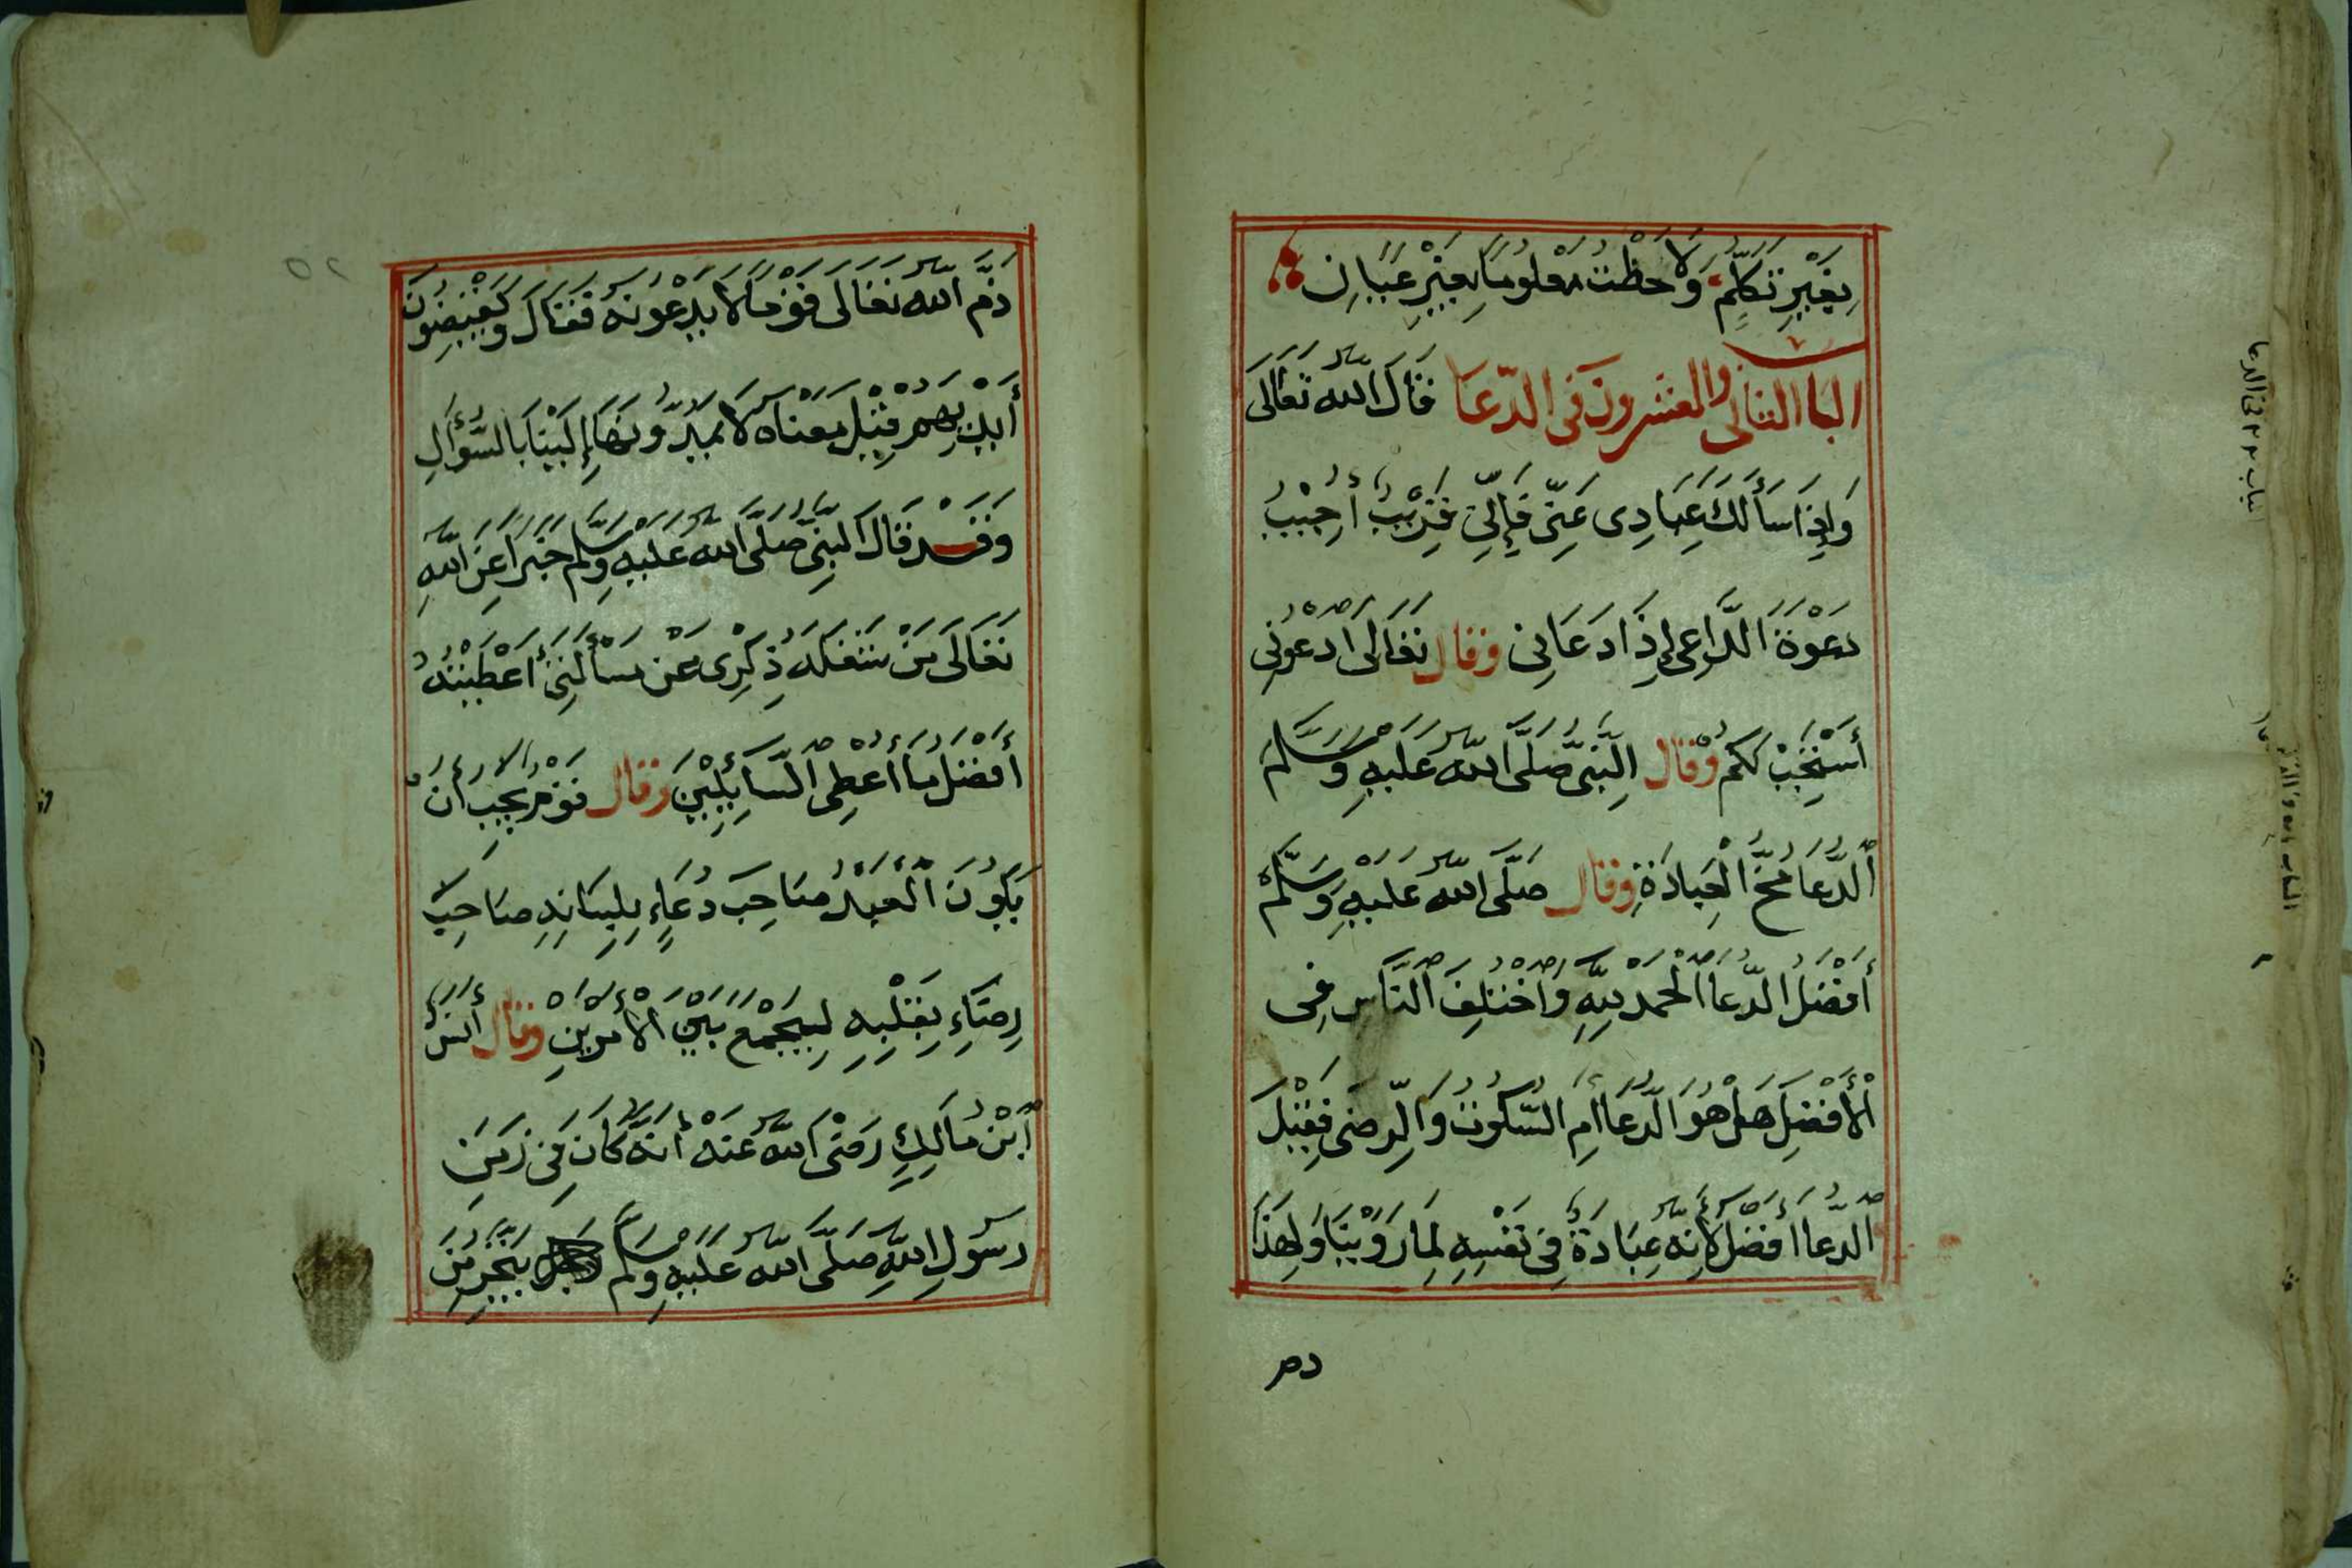 بِغَيْرِ تَكَلُّمٍ وَلَاحَظْتُ مَعْلُومًا بِغَيْرِ عِيَانِ
الباب الثاني والعشرون في الدّعا قَالَ اللّه تَعَالَى
وَإِذَا سَأَلَكَ عِبَادِى عَنِّى فَإِنِّي قَرِيْبٌ أُجِيْبُ
دَعْوَةَ الدَّاعِى إِذَا دَعَانِى وقال تَعَالَى ادْعُونِى
أَسْتَجِبْ لَكُمْ وَقال النَّبِىُّ صَلَّى اللّه عَلَيْهِ وَسَلَّمَ
اَلدُّعَا مُخُّ الْعِبَادَةِ وقال صَلَّى اللّه عليْهِ وَسَلَّمْ
أَفْضَلُ الدُّعَا اَلْحَمْدُ لِلَّهِ وَاخْتَلَفَ النَّاس فِى
الْأَفْضَلِ هَلْ هُوَ الدُّعَا امِ السُّكُوتُ وَالرِّضَى فَقِيْلَ
اَلدُّعَا أفضَل لأَنّه عِبَادَةٌ فِى نَفْسِهِ لِمَا رَوَيْنَا وَلِهَذَا
ذم
ذَمَّ اللّه تَعَالَى قَوْمًا لا يَدْعُونَهُ فَقَالَ وَيَقْبِضُونَ
أَيْدِيَهُمْ قِيْلَ مَعْنَاه لَا يَمُدُّونَهَا إِلَيْنَا بِالسُّؤَالِ
وَقَد قَالَ النَّبِىُّ صَلَّى اللّه عَلَيْهِ وَسَلَّم خَبَرًا عَنِ اللّهِ
تَعَالَى مَنْ شَغَلَهُ ذِكْرِى عَنْ مَسْأَلَتِى أَعْطَيْتُهُ
أَفْضَلَ مَا أُعْطِى السَّائِلِيْنَ وَقال قَوْمٌ يَجِب أَنْ
يَكُونَ الْعَبْدُ صَاحِبَ دُعَاءٍ بِلِسَانِهِ صَاحِبَ
رِضَاءٍ بِقَلْبِهِ لِيَجْمَعَ بَيْنَ الْأَمْرَيْنِ وقال أَنَسُ
ابْنُ مَالِكٍ رَضَىَ اللّه عَنْهُ أنَّهُ كَانَ فِى زَمَنِ
رَسُولِ اللّهِ صَلَّى اللّه عَلَيْهِ وَسَلَّم يَتَّجِرُ مِنَ
٥٢
الباب ٢٢ فى الدعا